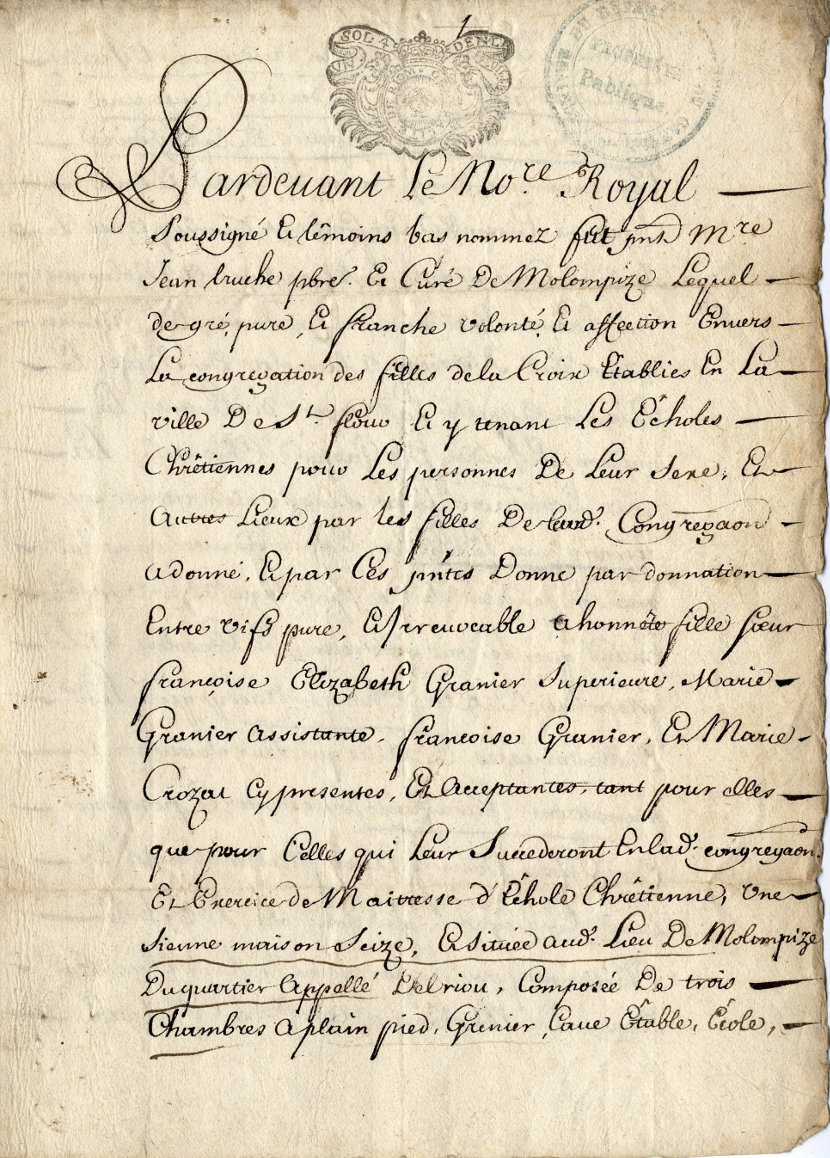 1
SOL 4 DEN
Propriété
Publique
Pardevant Le No.re Royal
Soussigné Et têmoins bas nommez fut pnt M.re
Jean truche pbre. Et Curé De Molompize Lequel
de gré, pure, Et franche volonté, Et affection Envers
La congregation des filles de la Croix Etablies En La
ville De St. flour Et y tenant Les Echoles
Chrêtiennes pour Les personnes De Leur Sexe, Et
Autres Lieux par les filles De lad. Congregaon
a donné, Et par Ces pntes Donne par donnation
Entre vifs pure, Et Irrevocable a honnête fille sœur
françoise Elizabeth Granier Superieure, Marie
Granier Assistante, francoise Granier, Et Marie
Crozat Cy presentes, Et Acceptantes, tant pour elles
que pour Celles qui Leur Succederont En lad. congregaon.
Et Exercice de Maitresse d'Echole Chrêtienne, Une
sienne maison Seize, Et située aud. Lieu De Molompize
Du quartier Appellé Delriou, Composée De trois
Chambres a plain pied, Grenier, Cave Etable, Ecole,